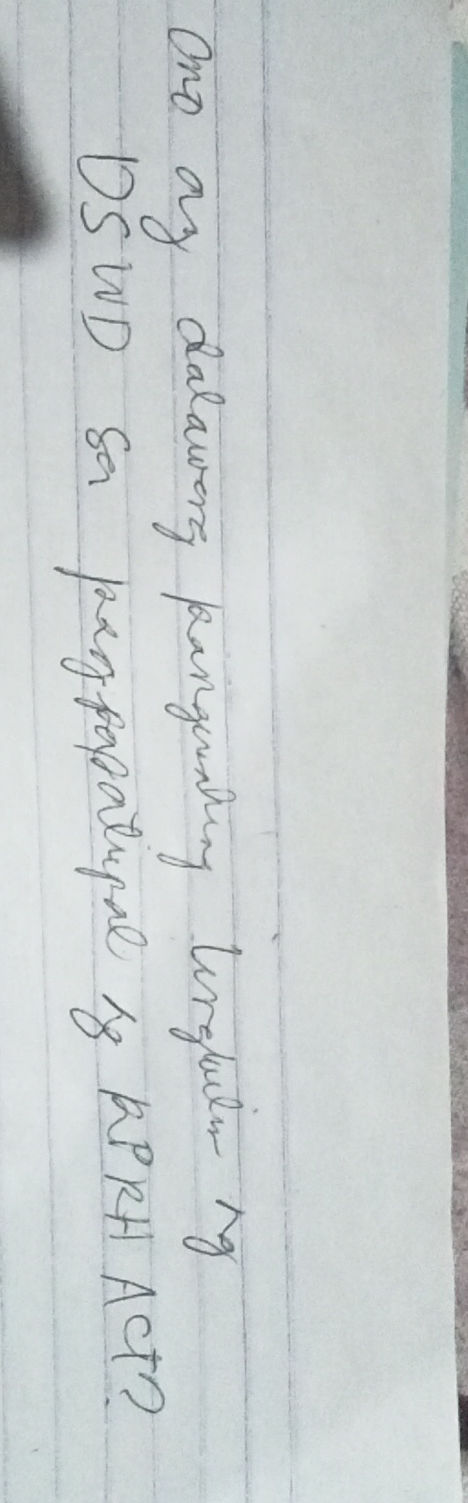 Ano ay dalawang pangunahing tungkulin ng
DSWD sa pagpapatupad ng RPRH Act?